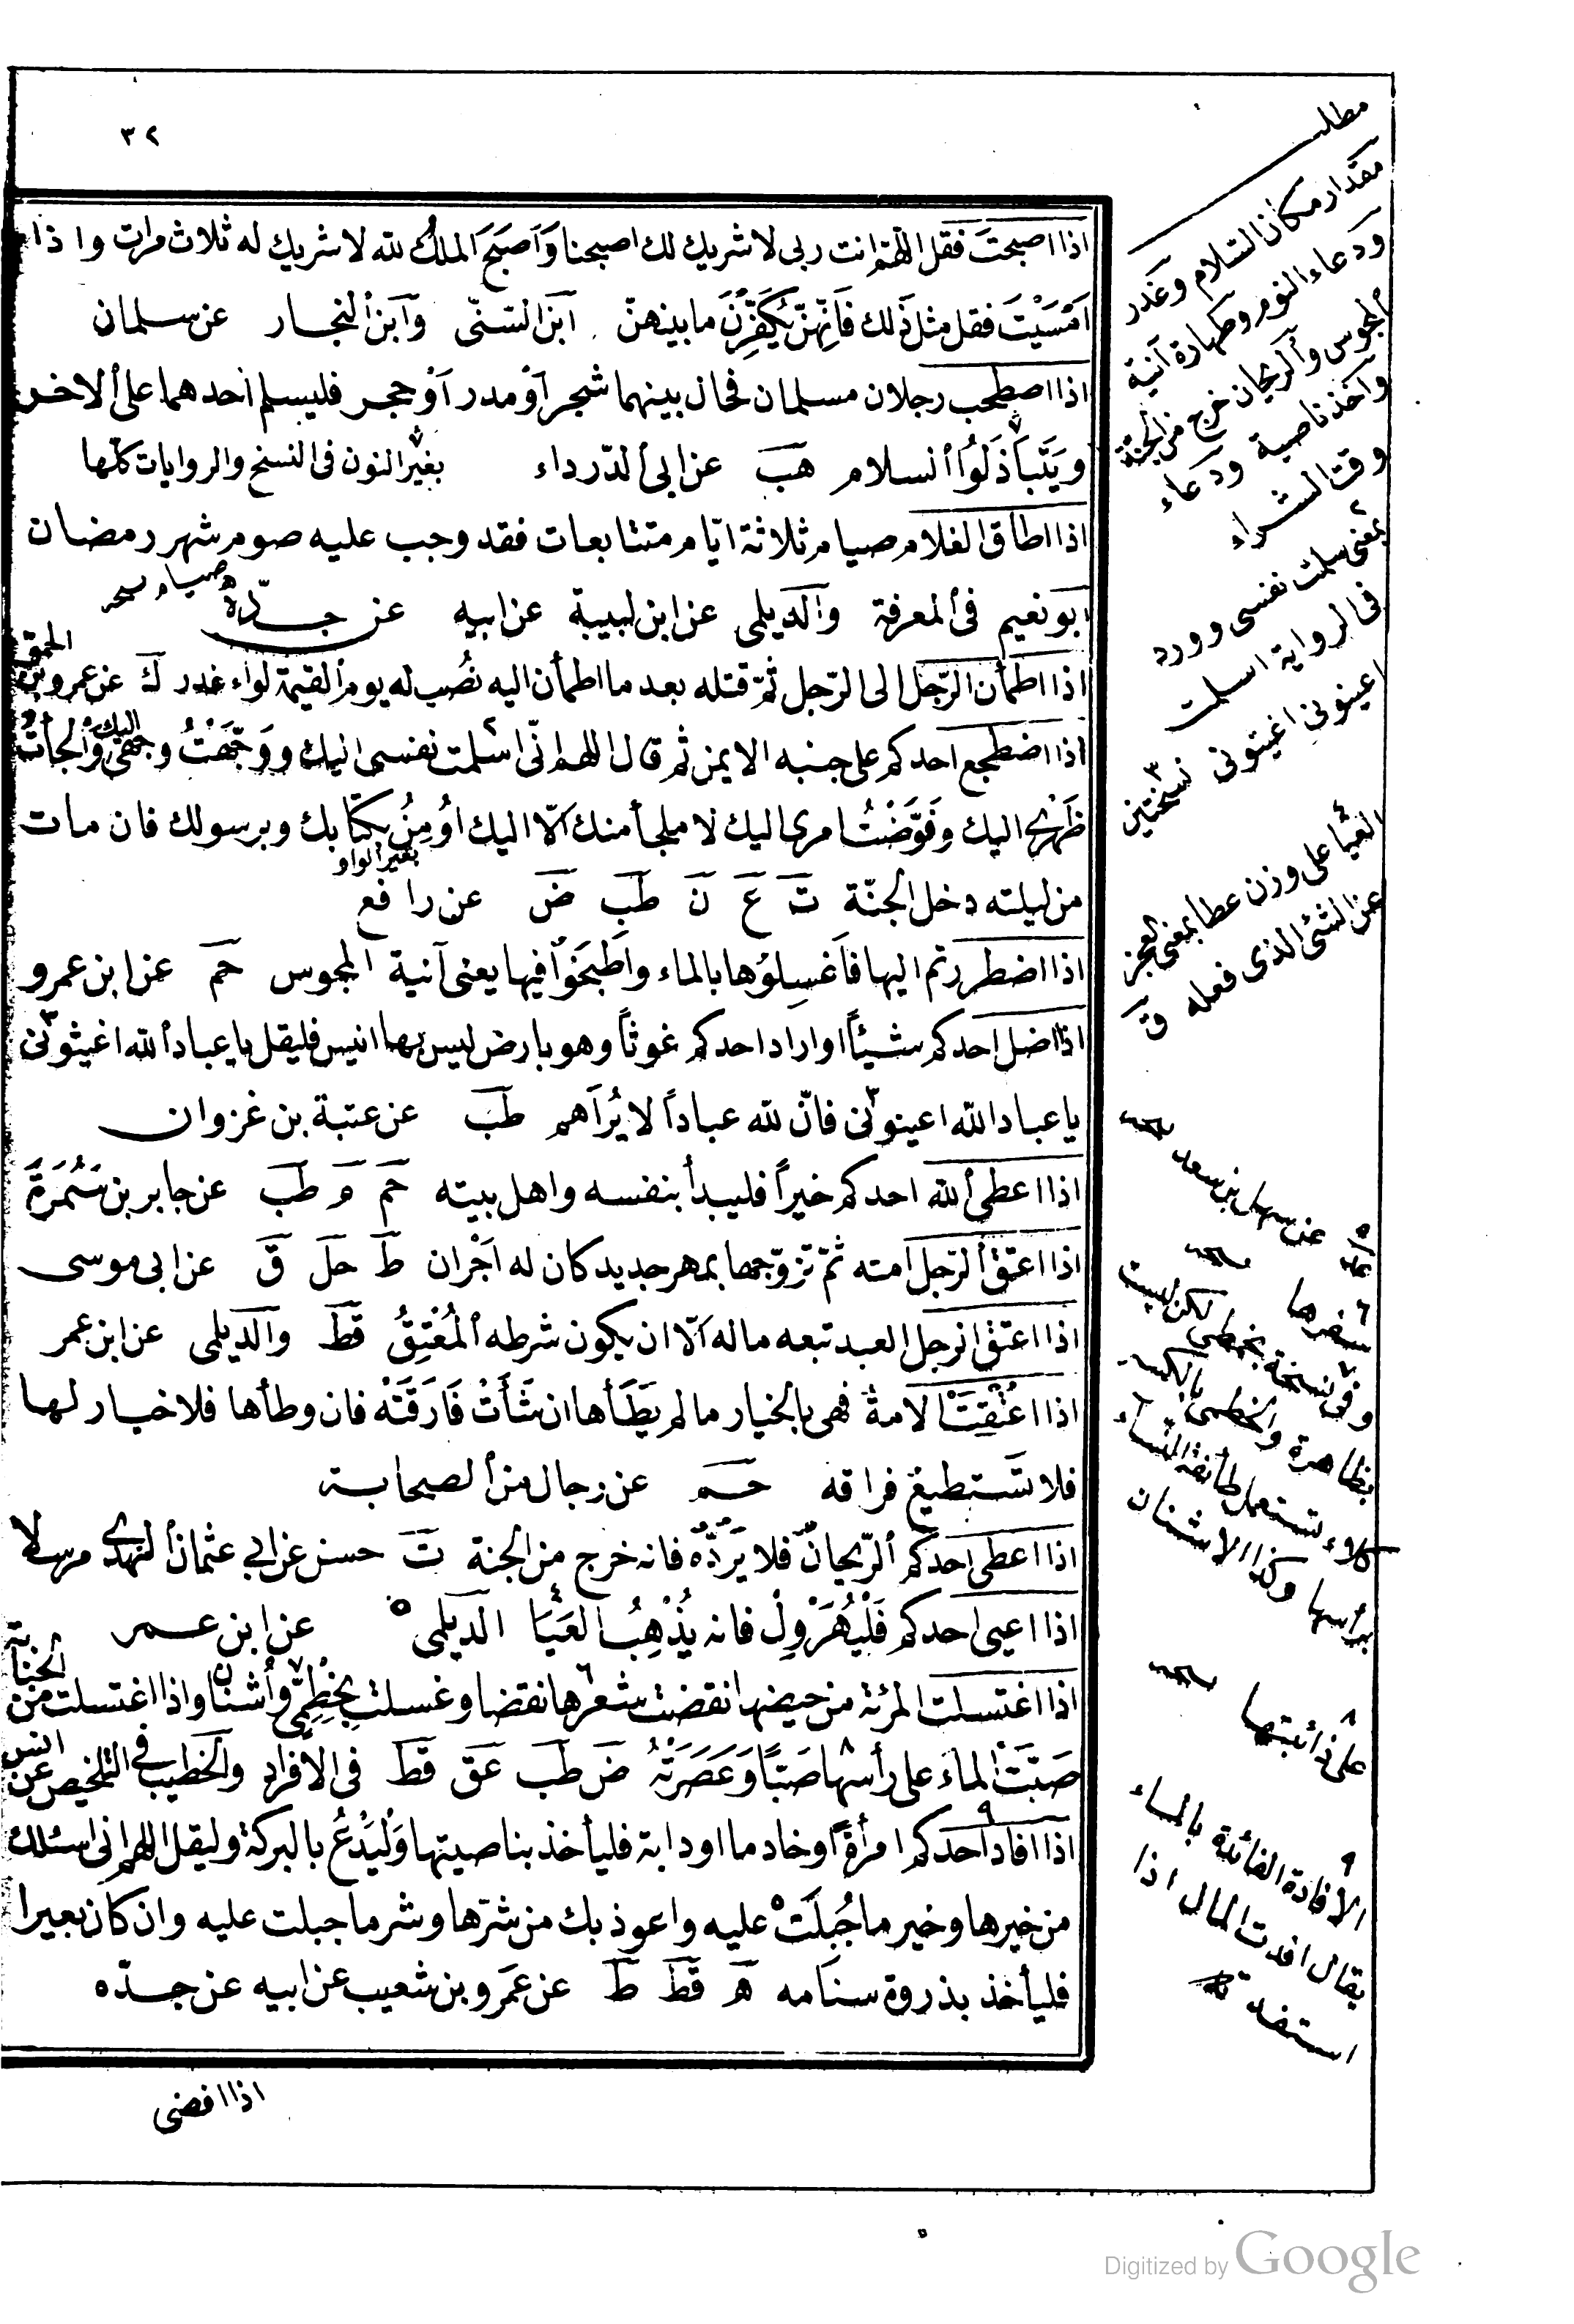 ٣٢
اذا اصبحت فقل اللهم انت ربى لا شريك لك اصبحنا وَاَصبَحَ الملكُ لله لا شريك له ثلاث مرات واذا
اَمْسَيْتَ فقل مثل ذلك فَاِنّهنّ يُكَفِّرْنَ ما بينهن ابن السّنّى وَابن النجار عن سلمان
اذا اصطحب رجلان مسلمان فحال بينهما شجر اَوْ مدر اَوْ حجر فليسلم احدهما على الاخر
وَيَتَباَذَلوُا السلام هَبَ عن ابى الدّرداء بغير النون فى النسخ والروايات كلها
اذا اطاق الغلام صيام ثلاثة ايّام متتابعات فقد وجب عليه صوم شهر رمضان
ابو نعيم فى المعرفة والديلمى عن ابن لبيبة عن ابيه عن جدّه
اذا اطمأن الرّجل الى الرّجل ثمّ قتله بعد ما اطمأن اليه نُصب له يوم القيمة لواء غدر كَ عن عمرو بن
الحمق
اذا اضطجع احدكم على جنبه الايمن ثم قال اللهم انّى اسلمت نفسى اليك ووَجَّهْتُ وجهى اليك وَالجأتُ
ظَهْرى اليك وفَوَّضْتُ امرى اليك لا ملجأ منك الّا اليك اُومِنُ بكتابك وبرسولك فان مات
بغير الواو
من ليلته دخل الجنّة تَ عَ نَ طَب ضَ عن رافع
اذا اضطررتم اليها فاَغسِلوُها بالماء واَطبخوُا فيها يعنى آنية المجوس حَم عن ابن عمرو
اذا اضل احدكم شيئاً او اراد احدكم غوثاً وهو بارض ليس بها انيس فليقل يا عباد الله اغيثونى
يا عباد الله اعينونى فانّ لله عباداً لا يُراَهم طَبَ عن عتبة بن غزوان
اذا اعطى الله احدكم خيراً فليبدأ بنفسه واهل بيته حَم مَ طَب عن جابر بن سَمُرَةَ
اذا اعتق الرّجل اَمته ثمّ تزوّجها بمهر جديد كان له اَجْران طَ حَل قَ عن ابى موسى
اذا اعتق الرجل العبد تبعه ماله الّا ان يكون شرطه المُعْتِقُ قَط والديلمى عن ابن عمر
اذا اعْتِقَتْ الامة فهى بالخيار ما لم يَطَأها ان شَأَتْ فَارَقَتْه فان وطأها فلا خيار لها
فلا تَستطيعُ فراقه حَم عن رجال من الصحابة
اذا اعطى احدكم الرّيحانَ فلا يَرُدَّهُ فانه خرج من الجنة تَ حسن عن ابى عثمان النهدى مرسلا
اذا اعيى احدكم فَلْيُهَرْوِلْ فانه يُذْهِبُ العَيَا الديلمى عن ابن عمر
اذا اغتسلت المرئة من حيضها نقضت شعرها نقضا وغسلت بِخِطْمِىٍّ واُشنان واذا اغتسلت من
الجنابة
صَبَّتْ الماء على رأسها صَبّاً وَعَصَرَتْهُ ضَ طَب عَق قَط فى الافراد والخطيب فى التلخيص عن
انس
اذا افاد احدكم امرأةً او خادما او دابة فليأخذ بناصيتها وَلْيَدْعُ بالبركة وليقل اللهم انى اسئلك
من خيرها وخير ما جُبِلَتْ عليه واعوذ بك من شرّها وشر ما جبلت عليه وان كان بعيرا
فليأخذ بذروة سنامه هَ قَط طَ عن عَمرو بن شعيب عن ابيه عن جدّه
اذا افضى
مطلب
مقدار مكان السّلام وغدر
ودعاء النوم وطهارة آنية
المجوس والريحان خرج من الجنة
واخذ ناصية ودعاء
وقت الشراء
٢ بمعنى سلمت نفسى وورد
فى الرواية اسلمت
اعينونى اغيثونى نسختين ٣
العيأ على وزن عطا بمعنى العجز
عن الشئ الذى فعله
٥ عن سهل بن سعد
٦ ضفرها
٧ وفى نسخة بخطمى لكن ليست
بظاهرة والخطمى بالكسر
برأسها وكذا الاشنان
٨ على ذائبتها
٩ الافادة الفائدة بالماء
يقال افدت المال اذا
استفدته
Digitized by Google